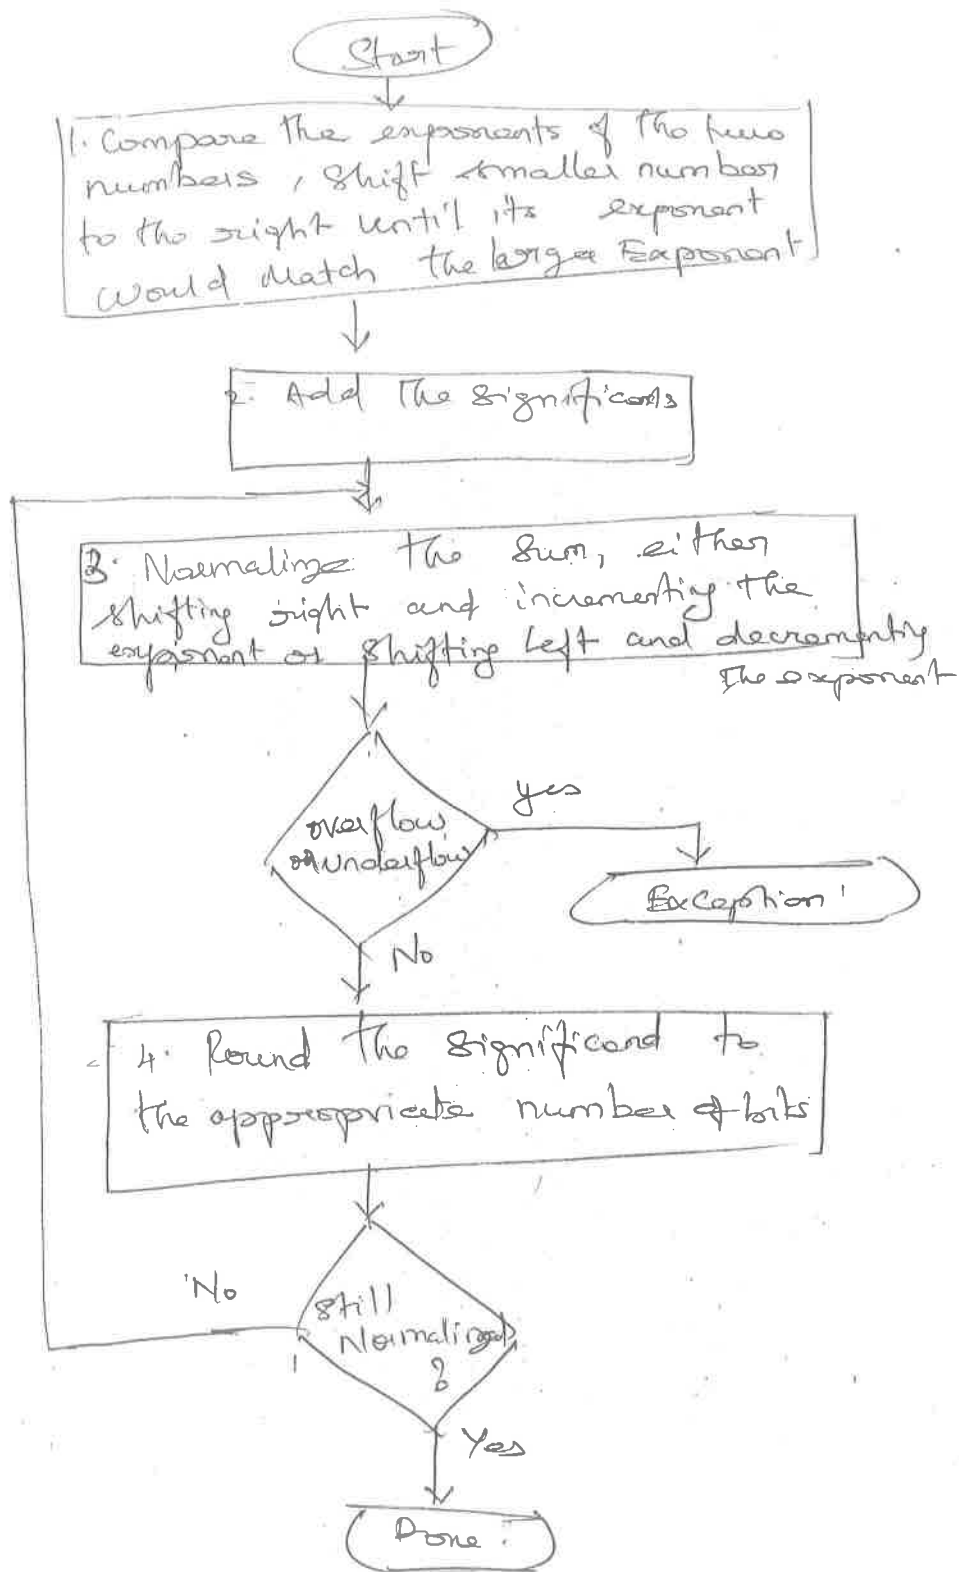 Start
1. Compare the exponents of the two
numbers, Shift smaller number
to the right until its exponent
would Match the larger Exponent
2. Add The Significands
3. Normalize the Sum, either
shifting right and incrementing the
exponent or Shifting Left and decrementing
The exponent
overflow
or underflow
yes
Exception!
No
4. Round the Significand to
the appropriate number of bits
No
Still
Normalized
?
Yes
Done.